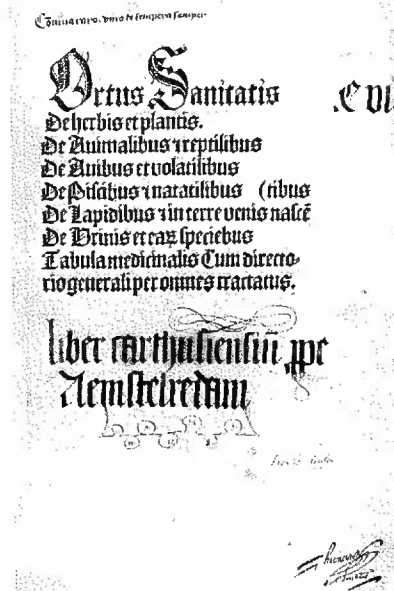 Ortus Sanitatis
De herbis et plantis.
De Animalibus ⁊ reptilibus
De Auibus et volatilibus
De Piscibus ⁊ natatilibus (tibus
De Lapidibus ⁊ in terre venis nascē
De Urinis et earꝝ speciebus
Tabula medicinalis Cum directo-
rio generali per omnes tractatus.
liber carthusiensiū ꝓpe
Aemstelredam